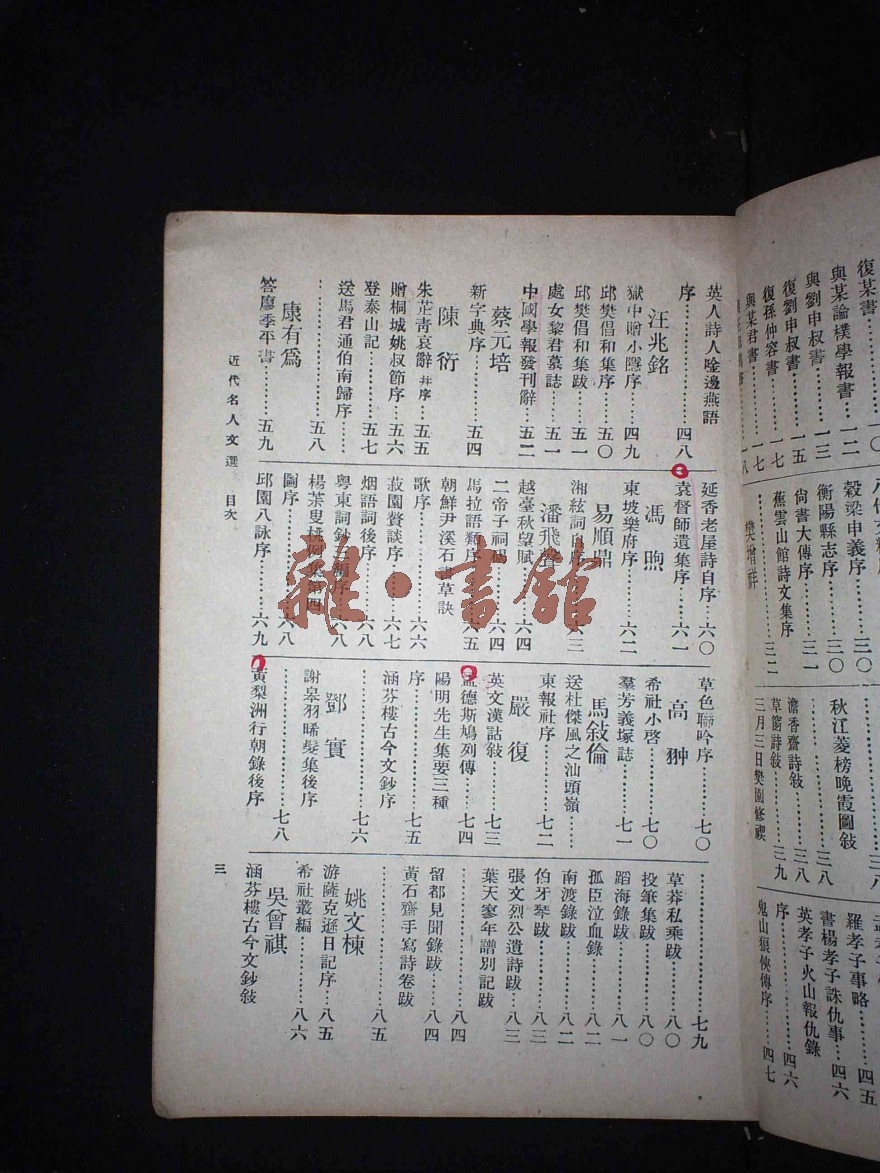 復某書……一〇
與某論樸學報書…一二
與劉申叔書……一三
復劉申叔書……一五
復孫仲容書……一七
與某君書……一七
穀梁申義序……三〇
衡陽縣志序……三一
尙書大傳序……三一
蕉雲山館詩文集序
……三二
樊增祥
……三八
秋江菱榜晚霞圖敍
……三八
澹香齋詩敍……三八
草窗詩敍……三九
三月三日樊園修禊
羅孝子事略……四五
書楊孝子誅仇事…四六
英孝子火山報仇錄
序……四六
鬼山狼俠傳序……四七
英人詩人唫邊燕語
序……四八
汪兆銘
獄中贈小隱序……四九
邱樊倡和集序……五〇
邱樊倡和集跋……五一
處女黎君墓誌……五一
中國學報發刊辭…五二
蔡元培
新字典序……五四
陳衍
朱芷青哀辭 幷序…五五
贈桐城姚叔節序…五六
登泰山記……五七
送馬君通伯南歸序
……五八
康有爲
答廖季平書……五九
延香老屋詩自序…六〇
袁督師遺集序……六一
馮煦
東坡樂府序……六二
易順鼎
湘絃詞自序……六三
潘飛聲
越臺秋望賦……六四
二帝子祠碑……六四
馬拉語類序……六五
朝鮮尹溪石書草訣
歌序……六六
菽園贅談序……六七
烟語詞後序……六八
粵東詞鈔三編序…六八
楊荼叟桃例集第四
圖序……六八
邱園八詠序……六九
草色聯吟序……七〇
高翀
希社小啓……七〇
羣芳義塚誌……七一
馬敍倫
送杜傑風之汕頭嶺
東報社序……七二
嚴復
英文漢詁敍……七三
孟德斯鳩列傳……七四
陽明先生集要三種
序……七五
涵芬樓古今文鈔序
……七六
鄧實
謝皋羽晞髮集後序
……七八
黃梨洲行朝錄後序
……七九
草莽私乘跋……八〇
投筆集跋……八〇
蹈海錄跋……八一
孤臣泣血錄……八二
南渡錄跋……八二
伯牙琴跋……八三
張文烈公遺詩跋…八三
葉天寥年譜別記跋
……八四
留都見聞錄跋……八四
黃石齋手寫詩卷跋
……八五
姚文棟
游薩克遜日記序…八五
希社叢編……八六
吳曾祺
涵芬樓古今文鈔敍
近代名人文選 目次
三
雜·書館